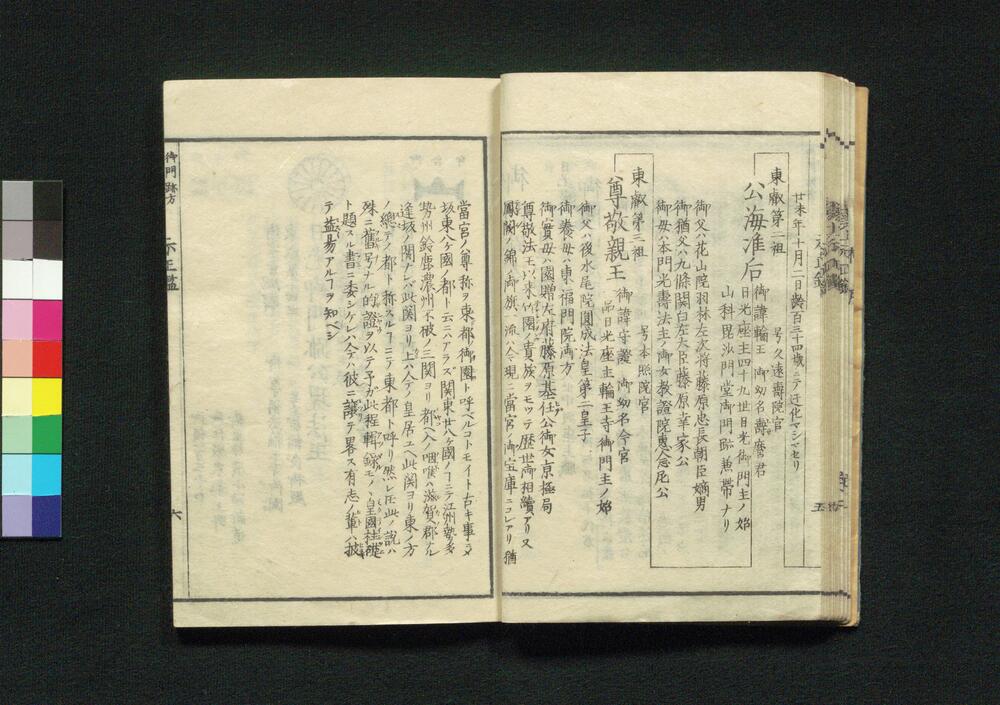 廿未年十月二日齢百三十四歳ニテ迁化マシマセリ
東叡第二祖　号久遠壽院宮
公海准后　御諱輪王　御幼名壽麿君
日光座主四十九世日光御門主ノ始
山科毘沙門堂御門跡兼帯ナリ
御父ハ花山院羽林左次将藤原忠長朝臣嫡男
御猶父ハ九條関白左大臣藤原幸家公
御母ハ本門光壽法主ノ御女教證院恵念尼公
東叡第三祖　号本照院宮
尊敬親王　御諱守澄　御幼名今宮
帚日光座主輪王寺御門主ノ始
御父ハ後水尾院圓成法皇第三皇子
御養母ハ東福門院御方
御實母ハ國贈左府藤原基任公御女京極局
尊敬法王以来竹園ノ貴族ヲモツテ歴世御相續アリ又
關ノ錦ノ御旗一流ハ今現ニ當宮ノ御宝庫ニコレアリ猶
當宮ノ尊称ヲ東都御園ト呼ベルコトモイト古キ事ニメ
坂東八ケ國ノ都ト云ニハアラズ関東廿八ケ國ノコニテ江州勢多
勢州鈴鹿濃州不破ノ三関ヨリ都ヘ入ノ咽喉ハ滋賀郡ナル
逢坂ノ関ナレバ此関ヨリ上ハ今ノ皇居ユヘ此関ヨリ東ノ方
ノ總テノ都ト称スルコニテ東都ト呼リ然レ圧此ノ説ハ
殊ニ舊号ナル的證ヲ以テ予ガ此程輯録モノヽ皇國
ト題スル書ニ委シケレハ今ハ彼ニ譲テ畧ス有志ノ輩ハ披
テ益易アルヿヲ知ベシ
御門跡方
六
五